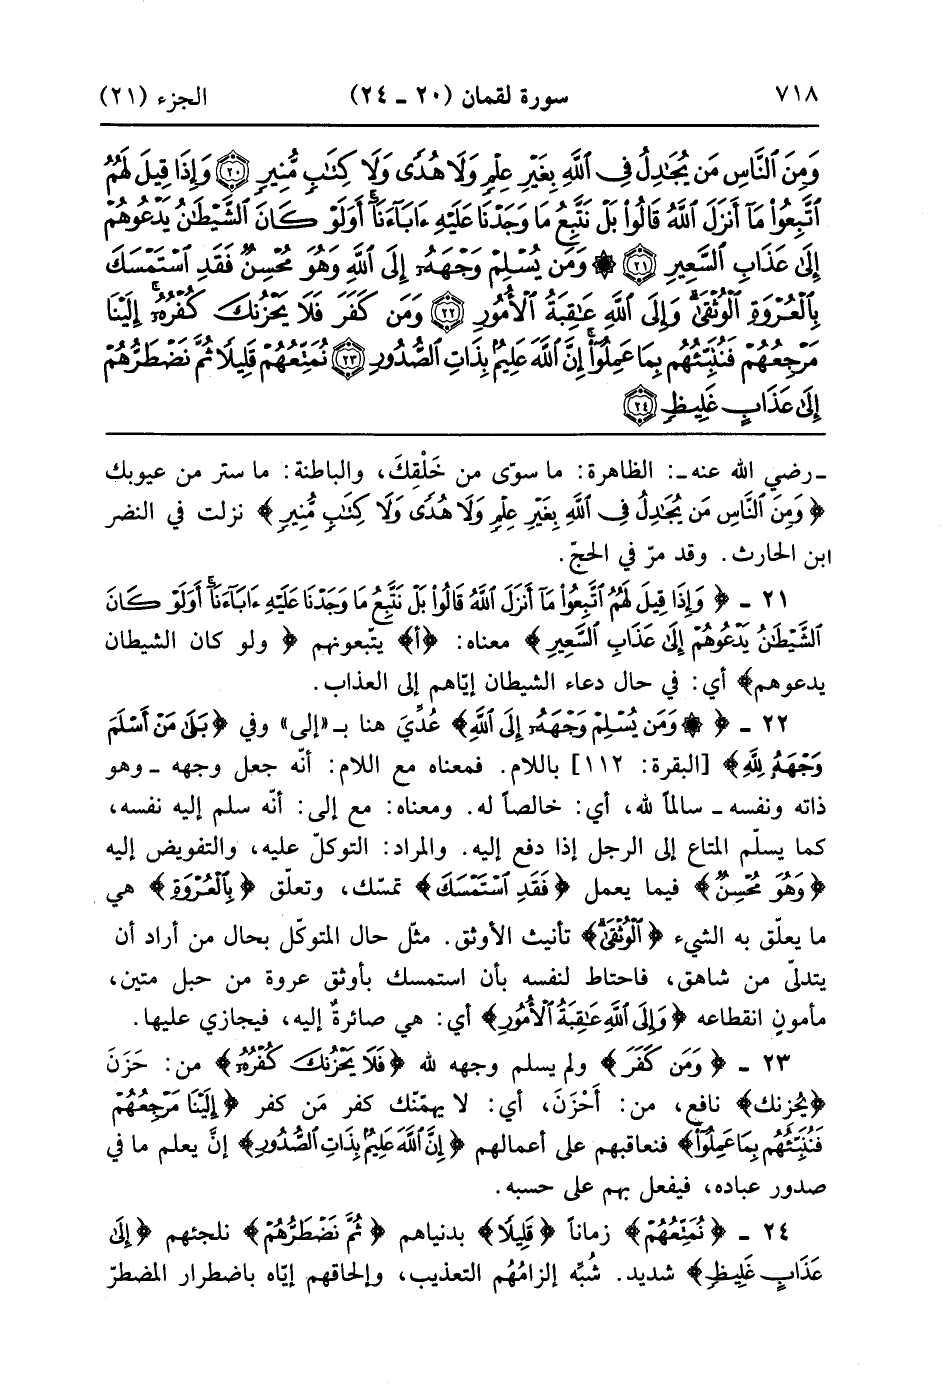 ٧١٨ سورة لقمان (٢٠ - ٢٤) الجزء (٢١)
وَمِنَ ٱلنَّاسِ مَن يُجَٰدِلُ فِى ٱللَّهِ بِغَيْرِ عِلْمٍ وَلَا هُدًى وَلَا كِتَٰبٍ مُّنِيرٍ ﴿٢٠﴾ وَإِذَا قِيلَ لَهُمُ
ٱتَّبِعُوا۟ مَآ أَنزَلَ ٱللَّهُ قَالُوا۟ بَلْ نَتَّبِعُ مَا وَجَدْنَا عَلَيْهِ ءَابَآءَنَآ ۚ أَوَلَوْ كَانَ ٱلشَّيْطَٰنُ يَدْعُوهُمْ
إِلَىٰ عَذَابِ ٱلسَّعِيرِ ﴿٢١﴾ ۞ وَمَن يُسْلِمْ وَجْهَهُۥٓ إِلَى ٱللَّهِ وَهُوَ مُحْسِنٌ فَقَدِ ٱسْتَمْسَكَ
بِٱلْعُرْوَةِ ٱلْوُثْقَىٰ ۗ وَإِلَى ٱللَّهِ عَٰقِبَةُ ٱلْأُمُورِ ﴿٢٢﴾ وَمَن كَفَرَ فَلَا يَحْزُنكَ كُفْرُهُۥٓ ۚ إِلَيْنَا
مَرْجِعُهُمْ فَنُنَبِّئُهُم بِمَا عَمِلُوٓا۟ ۚ إِنَّ ٱللَّهَ عَلِيمٌۢ بِذَاتِ ٱلصُّدُورِ ﴿٢٣﴾ نُمَتِّعُهُمْ قَلِيلًا ثُمَّ نَضْطَرُّهُمْ
إِلَىٰ عَذَابٍ غَلِيظٍ ﴿٢٤﴾
ـ رضي الله عنه ـ: الظاهرة: ما سوّى من خَلْقِكَ، والباطنة: ما ستر من عيوبك
﴿وَمِنَ ٱلنَّاسِ مَن يُجَٰدِلُ فِى ٱللَّهِ بِغَيْرِ عِلْمٍ وَلَا هُدًى وَلَا كِتَٰبٍ مُّنِيرٍ﴾ نزلت في النضر
ابن الحارث. وقد مرّ في الحجّ.
٢١ - ﴿وَإِذَا قِيلَ لَهُمُ ٱتَّبِعُوا۟ مَآ أَنزَلَ ٱللَّهُ قَالُوا۟ بَلْ نَتَّبِعُ مَا وَجَدْنَا عَلَيْهِ ءَابَآءَنَآ ۚ أَوَلَوْ كَانَ
ٱلشَّيْطَٰنُ يَدْعُوهُمْ إِلَىٰ عَذَابِ ٱلسَّعِيرِ﴾ معناه: ﴿أ﴾ يتّبعونهم ﴿ولو كان الشيطان
يدعوهم﴾ أي: في حال دعاء الشيطان إيّاهم إلى العذاب.
٢٢ - ﴿۞ وَمَن يُسْلِمْ وَجْهَهُۥٓ إِلَى ٱللَّهِ﴾ عُدِّيَ هنا بـ«إلى» وفي ﴿بَلَىٰ مَنْ أَسْلَمَ
وَجْهَهُۥ لِلَّهِ﴾ [البقرة: ١١٢] باللام. فمعناه مع اللام: أنّه جعل وجهه ـ وهو
ذاته ونفسه ـ سالماً لله، أي: خالصاً له. ومعناه: مع إلى: أنّه سلم إليه نفسه،
كما يسلّم المتاع إلى الرجل إذا دفع إليه. والمراد: التوكلّ عليه، والتفويض إليه
﴿وَهُوَ مُحْسِنٌ﴾ فيما يعمل ﴿فَقَدِ ٱسْتَمْسَكَ﴾ تمسّك، وتعلّق ﴿بِٱلْعُرْوَةِ﴾ هي
ما يعلّق به الشيء ﴿ٱلْوُثْقَىٰ﴾ تأنيث الأوثق. مثّل حال المتوكّل بحال من أراد أن
يتدلّى من شاهق، فاحتاط لنفسه بأن استمسك بأوثق عروة من حبل متين،
مأمونٍ انقطاعه ﴿وَإِلَى ٱللَّهِ عَٰقِبَةُ ٱلْأُمُورِ﴾ أي: هي صائرةٌ إليه، فيجازي عليها.
٢٣ - ﴿وَمَن كَفَرَ﴾ ولم يسلم وجهه لله ﴿فَلَا يَحْزُنكَ كُفْرُهُۥٓ﴾ من: حَزَنَ
﴿يُحزِنك﴾ نافع، من: أَحْزَنَ، أي: لا يهمّنّك كفر مَن كفر ﴿إِلَيْنَا مَرْجِعُهُمْ
فَنُنَبِّئُهُم بِمَا عَمِلُوٓا۟﴾ فنعاقبهم على أعمالهم ﴿إِنَّ ٱللَّهَ عَلِيمٌۢ بِذَاتِ ٱلصُّدُورِ﴾ إنَّ يعلم ما في
صدور عباده، فيفعل بهم على حسبه.
٢٤ - ﴿نُمَتِّعُهُمْ﴾ زماناً ﴿قَلِيلًا﴾ بدنياهم ﴿ثُمَّ نَضْطَرُّهُمْ﴾ نلجئهم ﴿إِلَىٰ
عَذَابٍ غَلِيظٍ﴾ شديد. شُبِّه إلزامُهُم التعذيب، وإلحاقهم إيّاه باضطرار المضطرّ